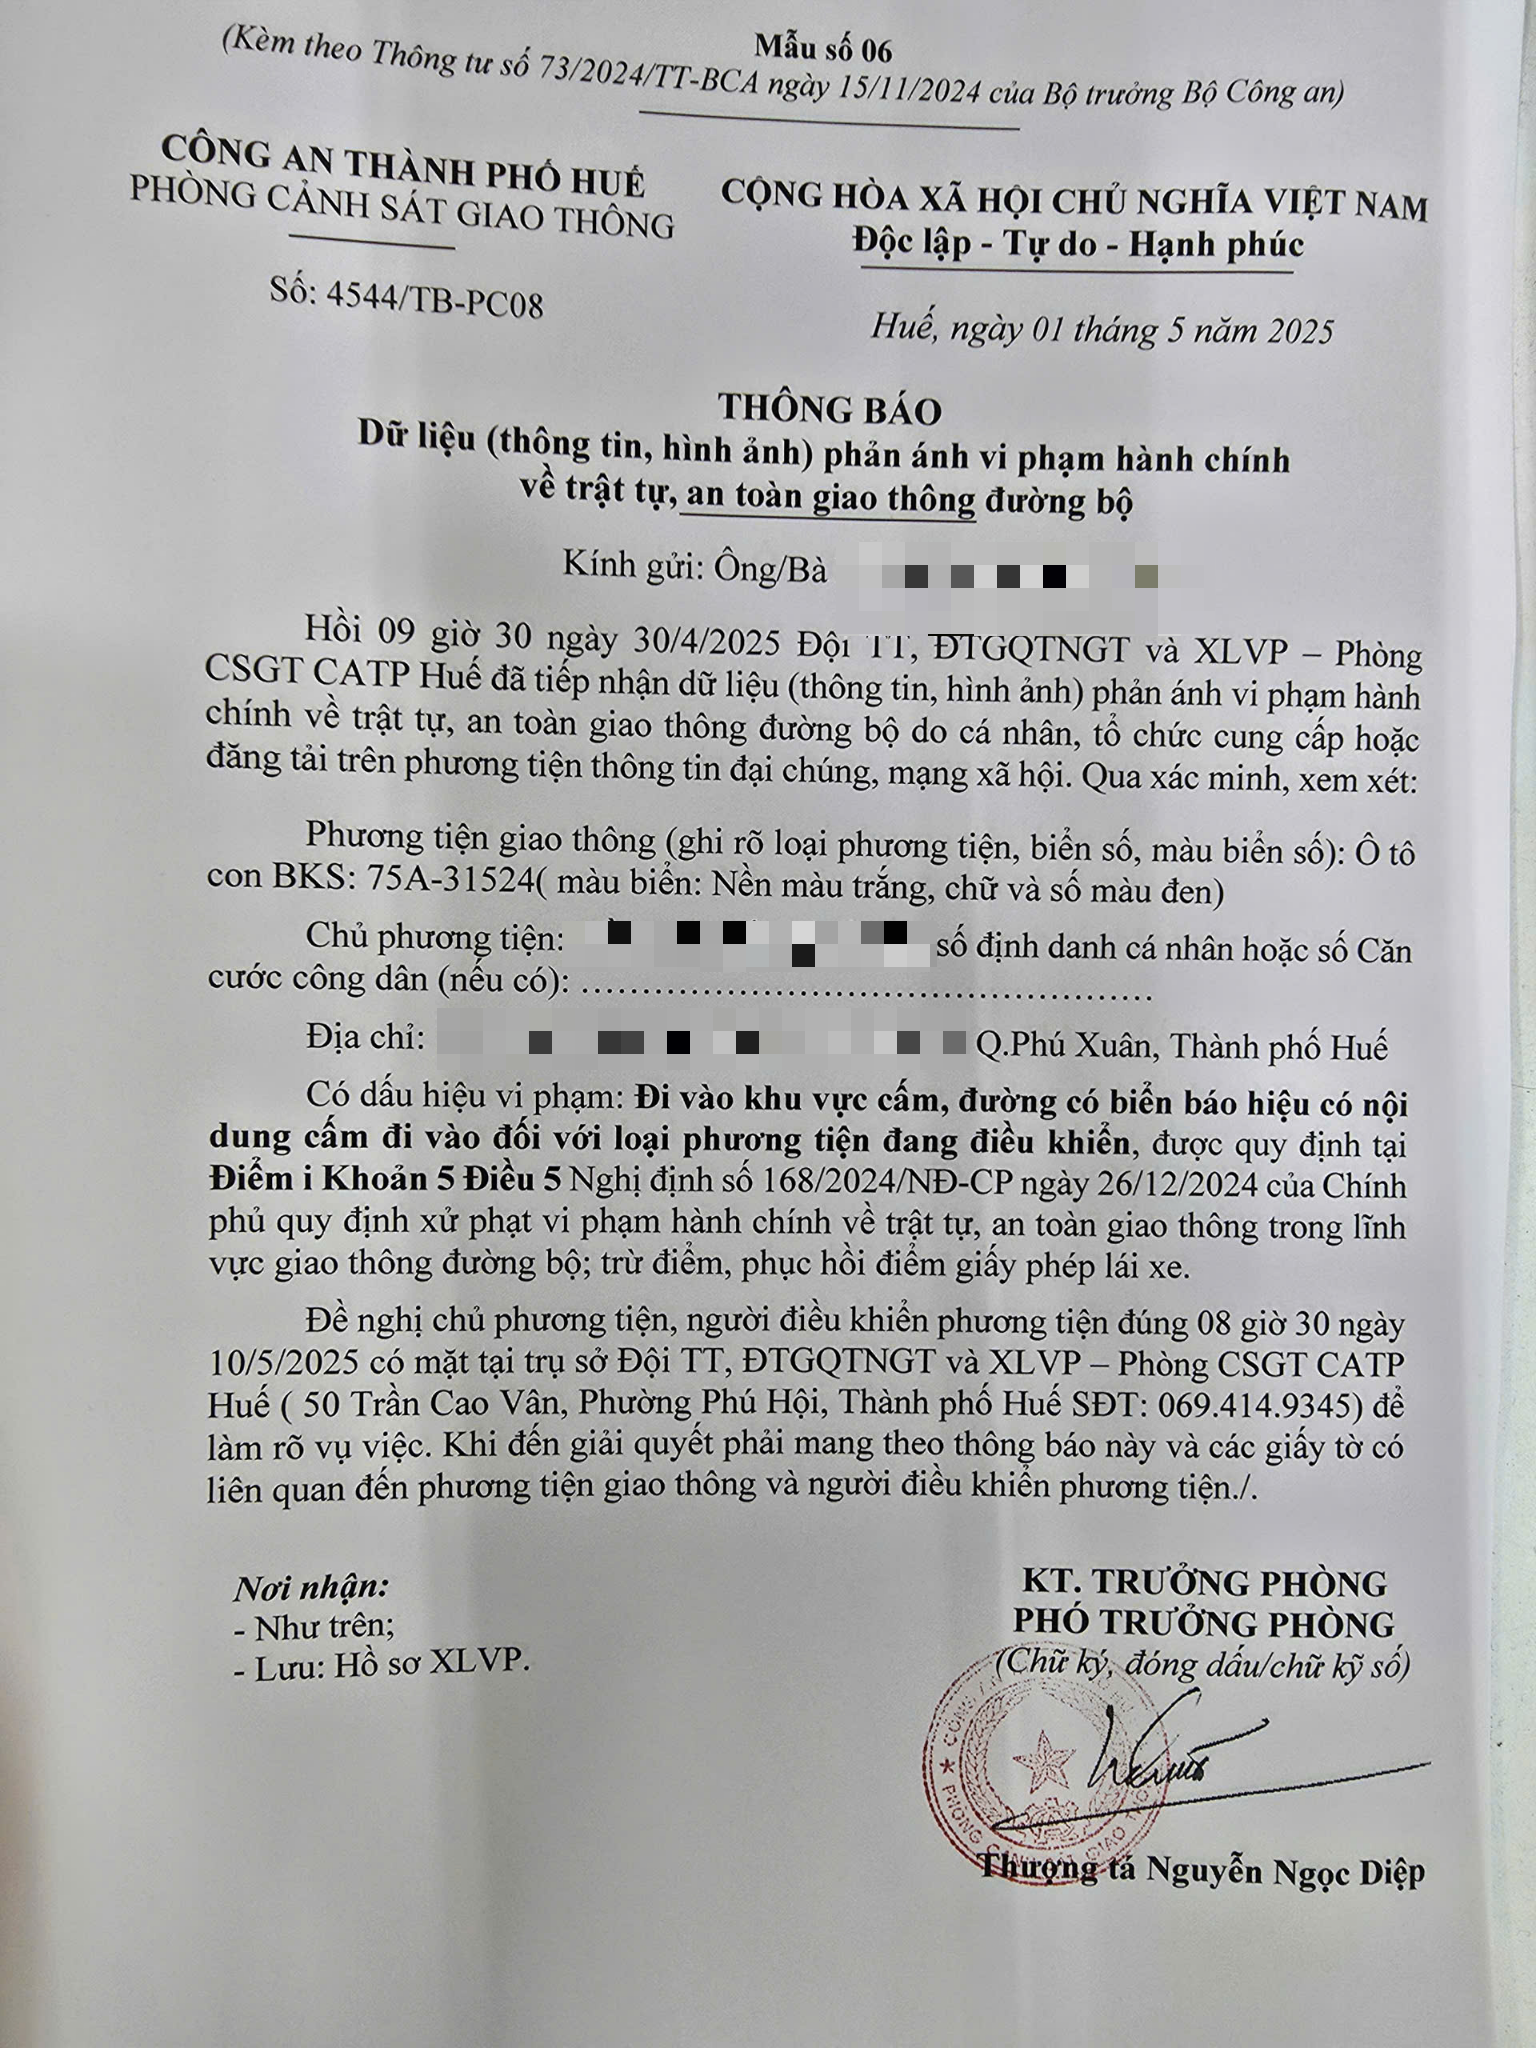 Mẫu số 06
(Kèm theo Thông tư số 73/2024/TT-BCA ngày 15/11/2024 của Bộ trưởng Bộ Công an)
CÔNG AN THÀNH PHỐ HUẾ
PHÒNG CẢNH SÁT GIAO THÔNG
CỘNG HÒA XÃ HỘI CHỦ NGHĨA VIỆT NAM
Độc lập - Tự do - Hạnh phúc
Số: 4544/TB-PC08
Huế, ngày 01 tháng 5 năm 2025
THÔNG BÁO
Dữ liệu (thông tin, hình ảnh) phản ánh vi phạm hành chính
về trật tự, an toàn giao thông đường bộ
Kính gửi: Ông/Bà
Hồi 09 giờ 30 ngày 30/4/2025 Đội TT, ĐTGQTNGT và XLVP – Phòng
CSGT CATP Huế đã tiếp nhận dữ liệu (thông tin, hình ảnh) phản ánh vi phạm hành
chính về trật tự, an toàn giao thông đường bộ do cá nhân, tổ chức cung cấp hoặc
đăng tải trên phương tiện thông tin đại chúng, mạng xã hội. Qua xác minh, xem xét:
Phương tiện giao thông (ghi rõ loại phương tiện, biển số, màu biển số): Ô tô
con BKS: 75A-31524( màu biển: Nền màu trắng, chữ và số màu đen)
Chủ phương tiện: số định danh cá nhân hoặc số Căn
cước công dân (nếu có): ....................................................
Địa chỉ: Q.Phú Xuân, Thành phố Huế
Có dấu hiệu vi phạm: Đi vào khu vực cấm, đường có biển báo hiệu có nội
dung cấm đi vào đối với loại phương tiện đang điều khiển, được quy định tại
Điểm i Khoản 5 Điều 5 Nghị định số 168/2024/NĐ-CP ngày 26/12/2024 của Chính
phủ quy định xử phạt vi phạm hành chính về trật tự, an toàn giao thông trong lĩnh
vực giao thông đường bộ; trừ điểm, phục hồi điểm giấy phép lái xe.
Đề nghị chủ phương tiện, người điều khiển phương tiện đúng 08 giờ 30 ngày
10/5/2025 có mặt tại trụ sở Đội TT, ĐTGQTNGT và XLVP – Phòng CSGT CATP
Huế ( 50 Trần Cao Vân, Phường Phú Hội, Thành phố Huế SĐT: 069.414.9345) để
làm rõ vụ việc. Khi đến giải quyết phải mang theo thông báo này và các giấy tờ có
liên quan đến phương tiện giao thông và người điều khiển phương tiện./.
Nơi nhận:
- Như trên;
- Lưu: Hồ sơ XLVP.
KT. TRƯỞNG PHÒNG
PHÓ TRƯỞNG PHÒNG
(Chữ ký, đóng dấu/chữ kỹ số)
Thượng tá Nguyễn Ngọc Diệp